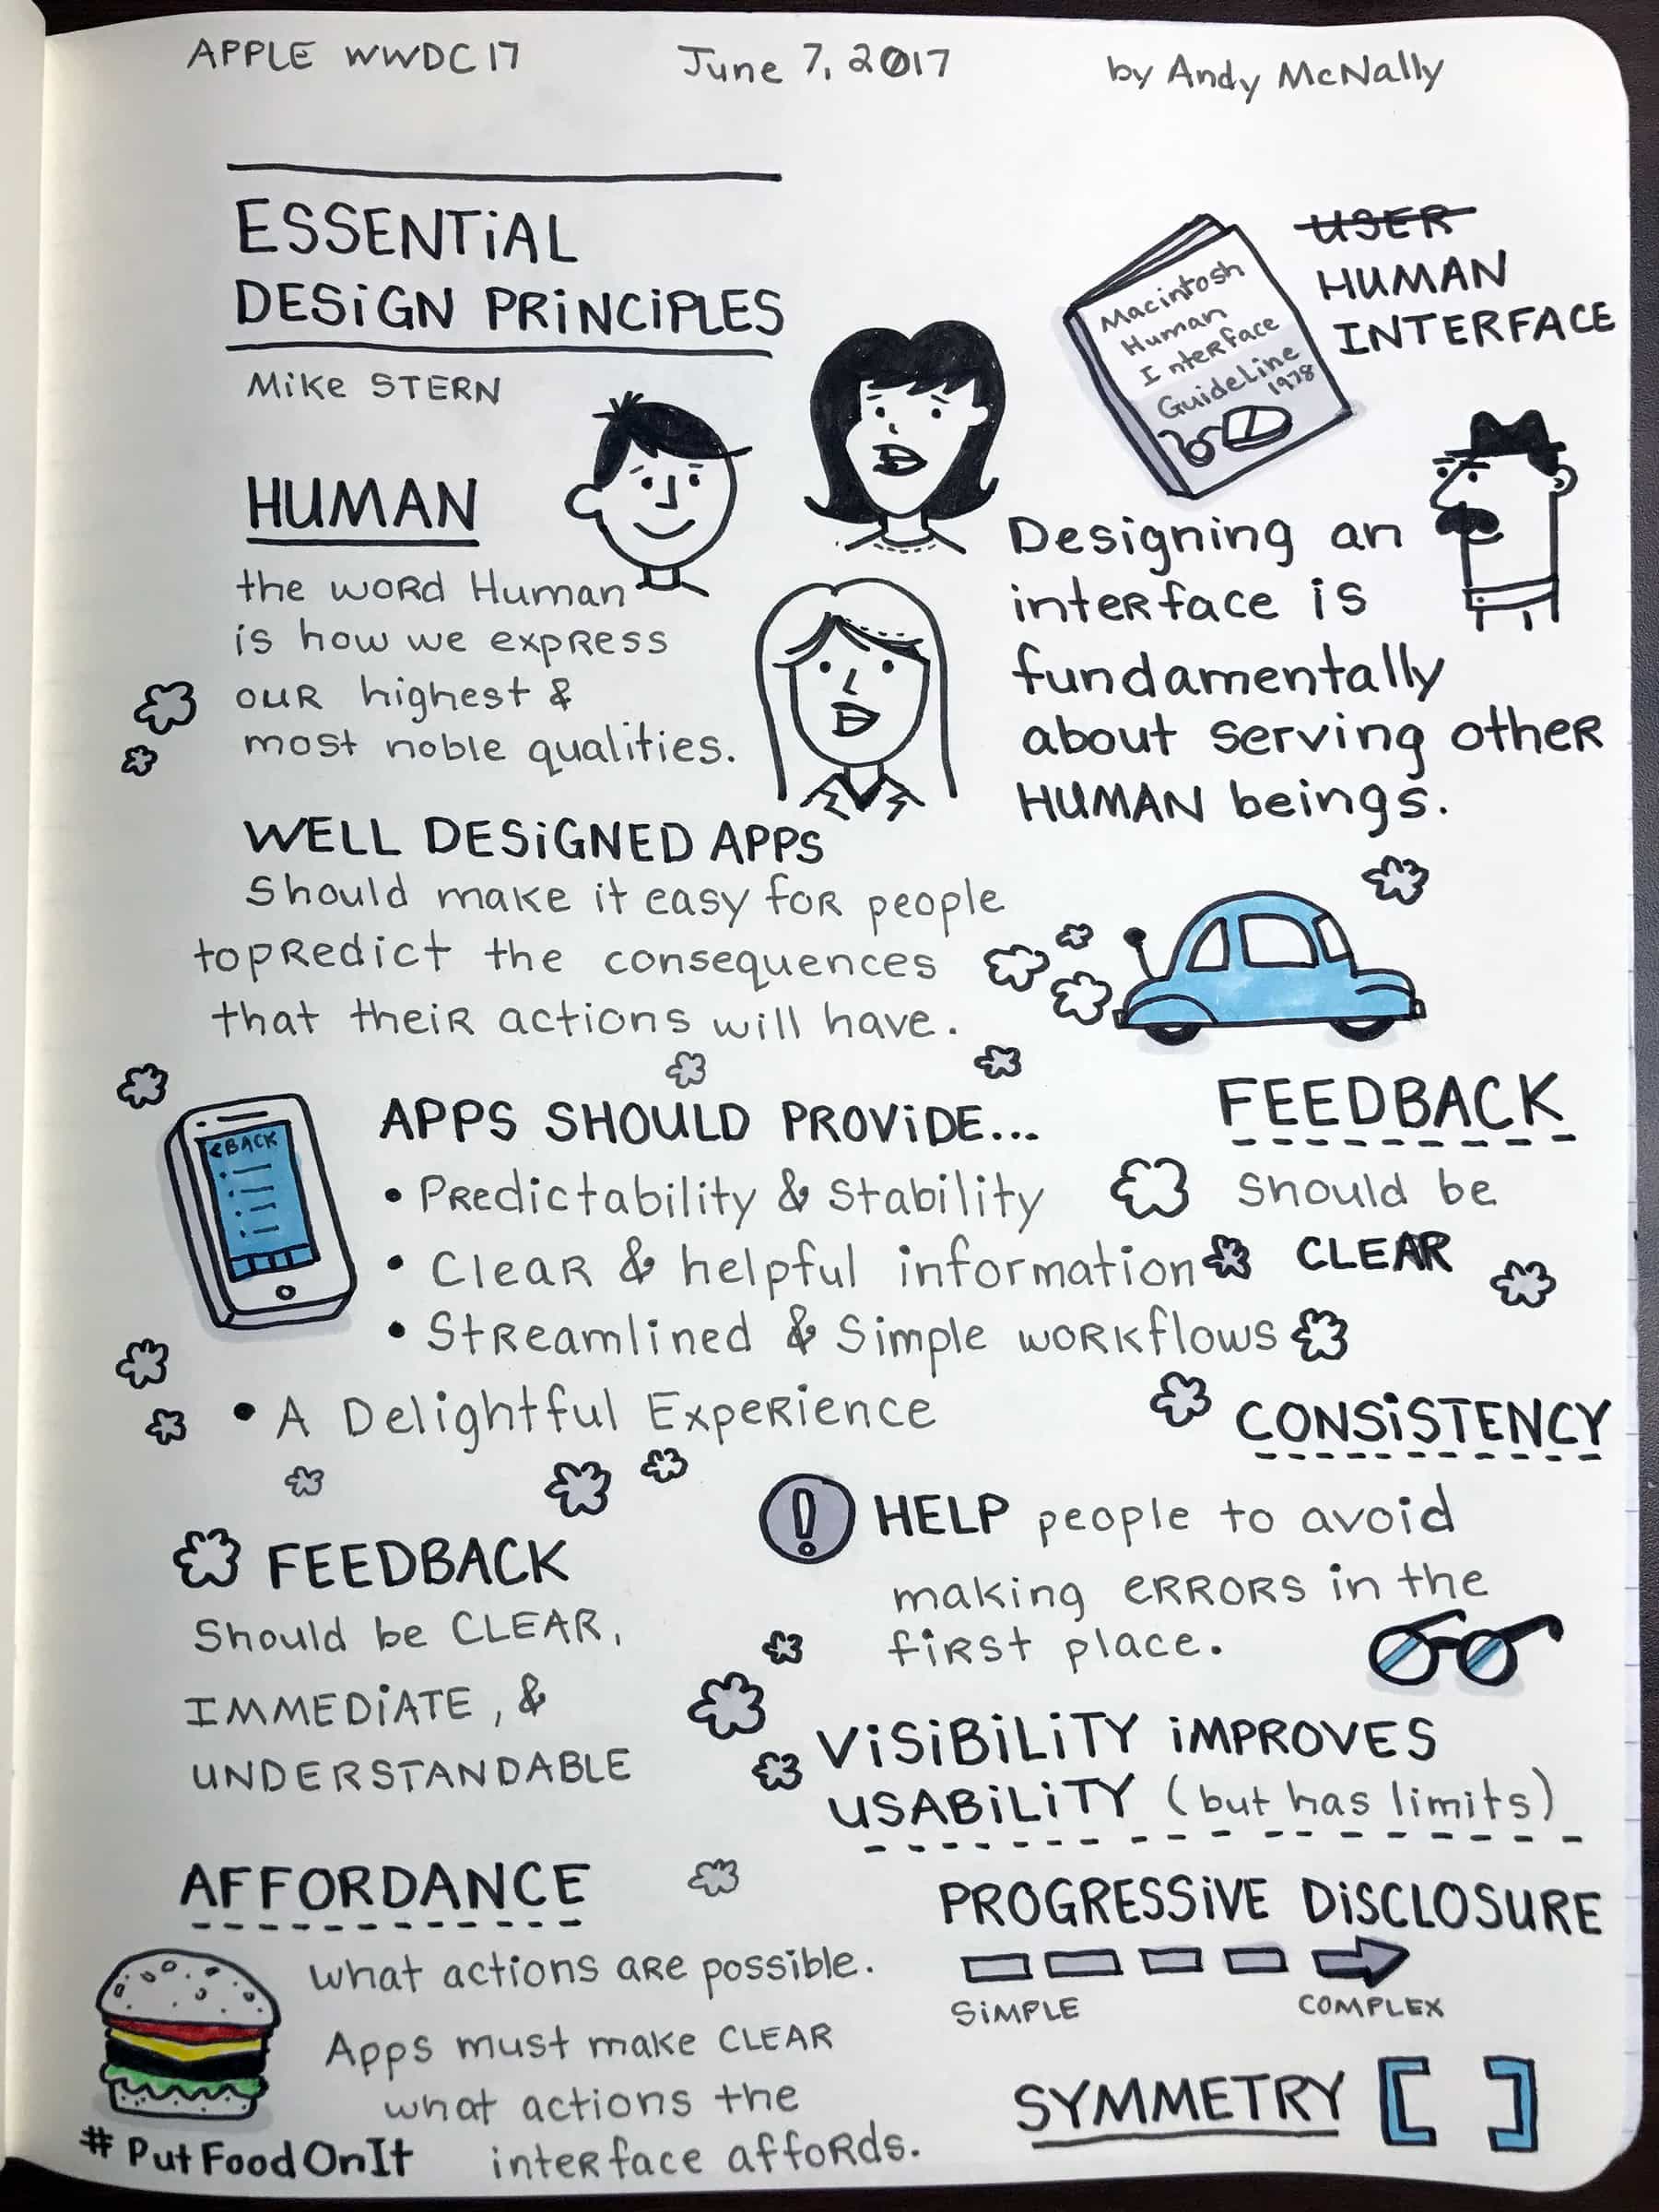 APPLE WWDC17 June 7, 2017 by Andy McNally
ESSENTiAL
DESiGN PRiNCiPLES
Mike STERN
USER
HUMAN
INTERFACE
Macintosh
Human
Interface
Guideline
1978
HUMAN
the word Human
is how we express
our highest &
most noble qualities.
Designing an
interface is
fundamentally
about serving other
HUMAN beings.
WELL DESiGNED APPS
Should make it easy for people
to predict the consequences
that their actions will have.
<BACK
APPS SHOULD PROViDE...
• Predictability & Stability
• Clear & helpful information
• Streamlined & Simple workflows
• A Delightful Experience
FEEDBACK
Should be
CLEAR
CONSiSTENCY
FEEDBACK
Should be CLEAR,
IMMEDiATE, &
UNDERSTANDABLE
! HELP people to avoid
making errors in the
first place.
ViSiBiLiTY iMPROVES
USABiLiTY (but has limits)
AFFORDANCE
what actions are possible.
Apps must make CLEAR
what actions the
interface affords.
#PutFoodOnIt
PROGRESSiVE DiSCLOSURE
SiMPLE COMPLEX
SYMMETRY [ ]